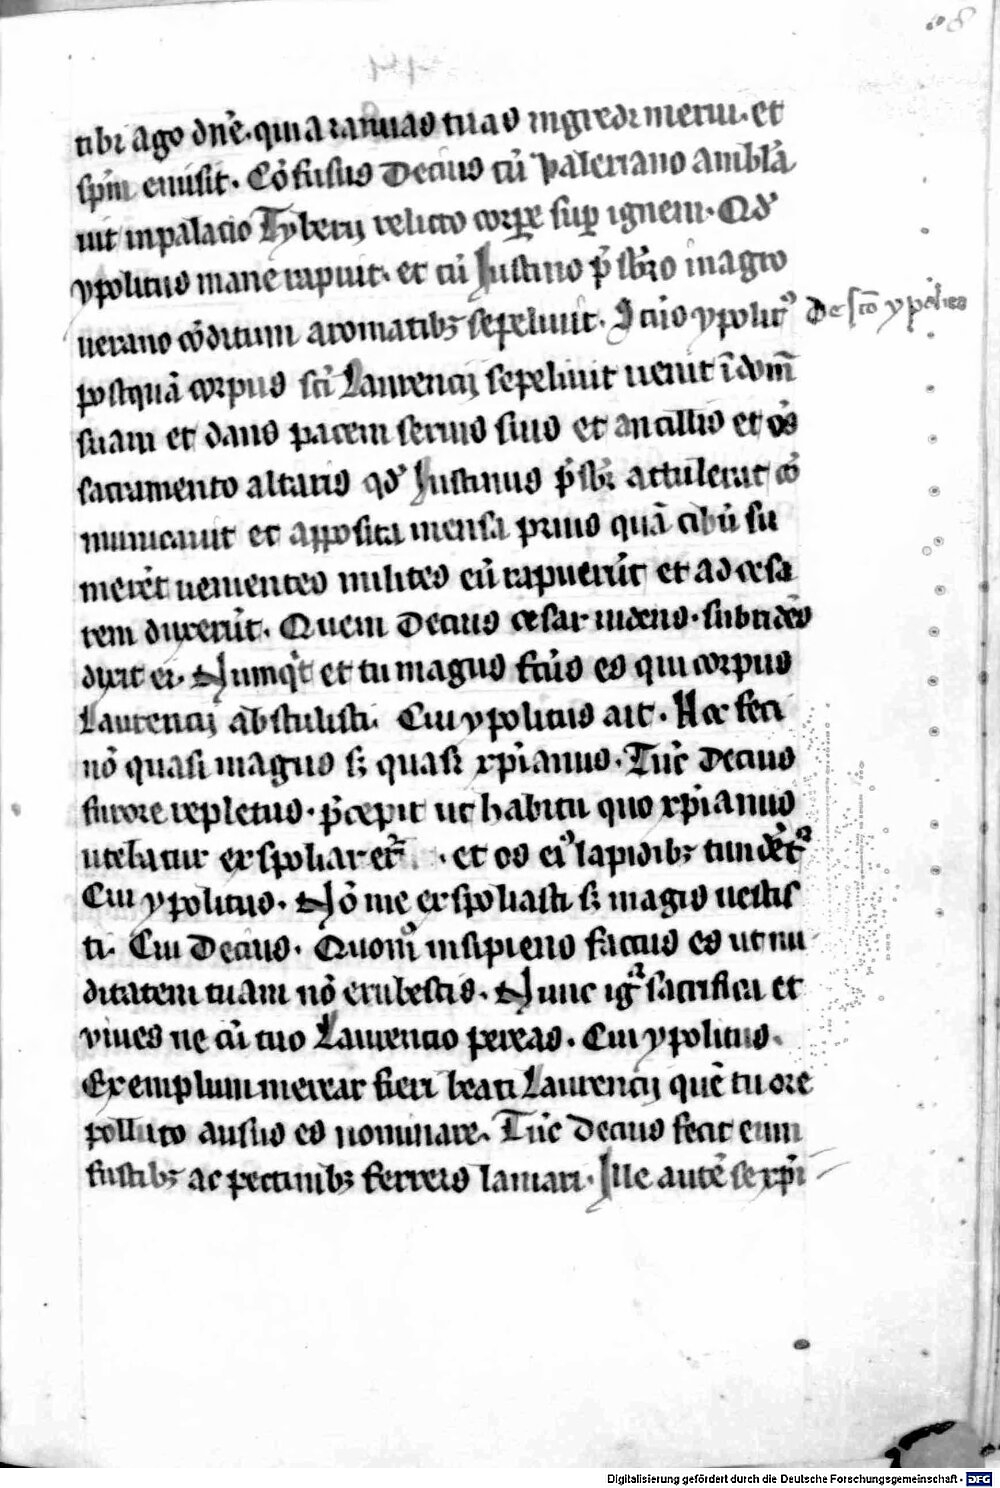 tibi ago dn̄e. quia ianuas tuas ingredi merui. et
sp̄m emisit. Cōfusus Decius cū Valeriano ambla
uit in palacio Tyberij relicto corꝑe suꝑ ignem. Qd̄
ypolitus mane rapuit. et cū Justino p̄sbr̄o in agro
uerano cōditum aromatibꝫ sepeliuit. Igit ypolitꝰ
De sc̄o ypolito
postquā corpus sc̄i Laurencij sepeliuit uenit ī domū
suam et dans pacem seruis suis et ancillis et
sacramento altaris qd̄ Justinus p̄sbr̄ attulerat cō
municauit et apposita mensa prius quā cibū su
merēt uenientes milites eū rapuerūt et ad cesa
rem duxerūt. Quem Decius cesar uidens. subridēs
dixit ei. Numqͥd et tu magus fc̄us es qui corpus
Laurencij abstulisti. Cui ypolitus ait. Hoc feci
nō quasi magus sꝫ quasi xp̄ianus. Tūc Decius
furore repletus. p̄cepit ut habitu quo xp̄ianus
utebatur exspoliaretᷣ. et os eiꝰ lapidibꝫ tunderetᷣ
Cui ypolitus. Nō me exspoliasti sꝫ magis uestis
ti. Cui Decius. Quomͦ insipiens factus es ut nu
ditatem tuam nō erubescis. Nunc igͣ sacrifica et
viues ne cū tuo Laurencio pereas. Cui ypolitus.
Exemplum merear fieri beati Laurencij quē tu ore
polluto ausus es nominare. Tūc Decius fecit eum
fustibꝫ ac pectinibꝫ ferreis laniari. Ille autē se xp̄i
Digitalisierung gefördert durch die Deutsche Forschungsgemeinschaft - DFG